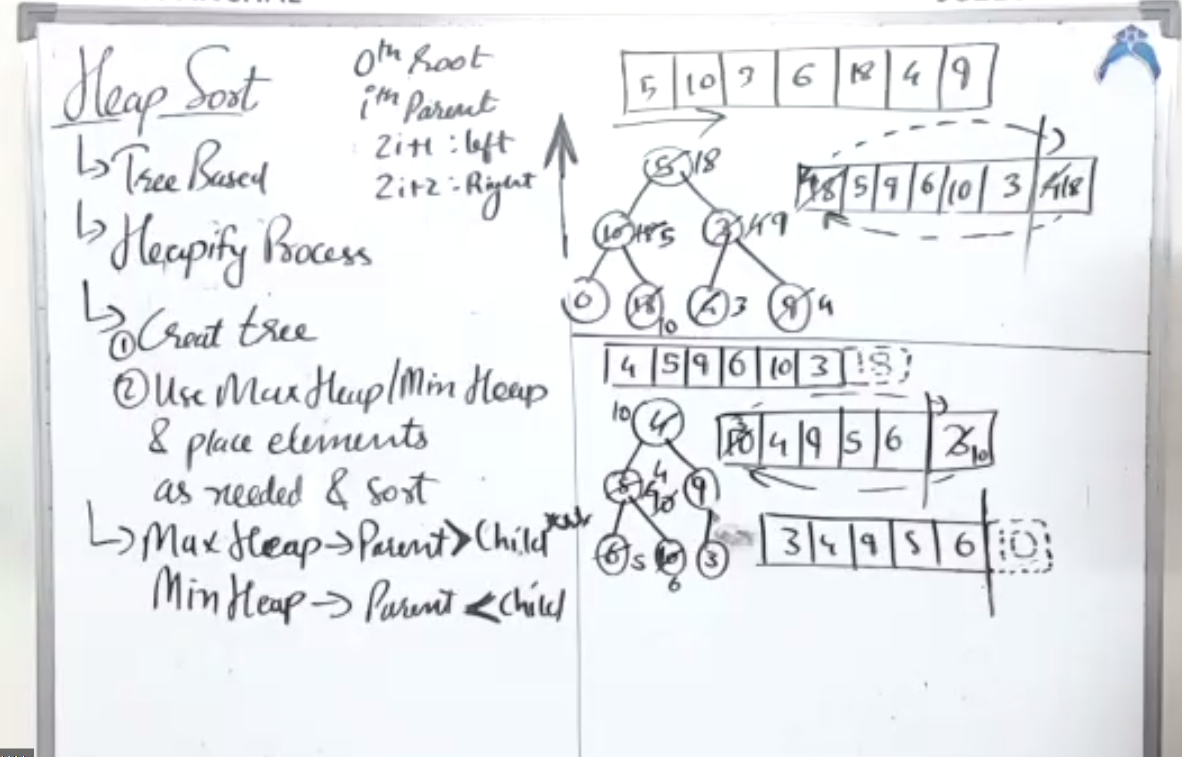 Heap Sort
↳ Tree Based
↳ Heapify Process
↳ ① Creat tree
② Use Max Heap/Min Heap
& place elements
as needed & sort
↳ Max Heap → Parent > Child
Min Heap → Parent < Child
0th Root
ith Parent
2i+1 : left
2i+2 : Right
5 | 10 | 3 | 6 | 18 | 4 | 9
5 18
10 18 5
4 9
6
10
3
9 4
18 | 5 | 9 | 6 | 10 | 3 | 4 18
4 | 5 | 9 | 6 | 10 | 3 | 18
10 4
4
9
6 5
10
6
3
10 | 4 | 9 | 5 | 6 | 3 10
3 | 4 | 9 | 5 | 6 | 10